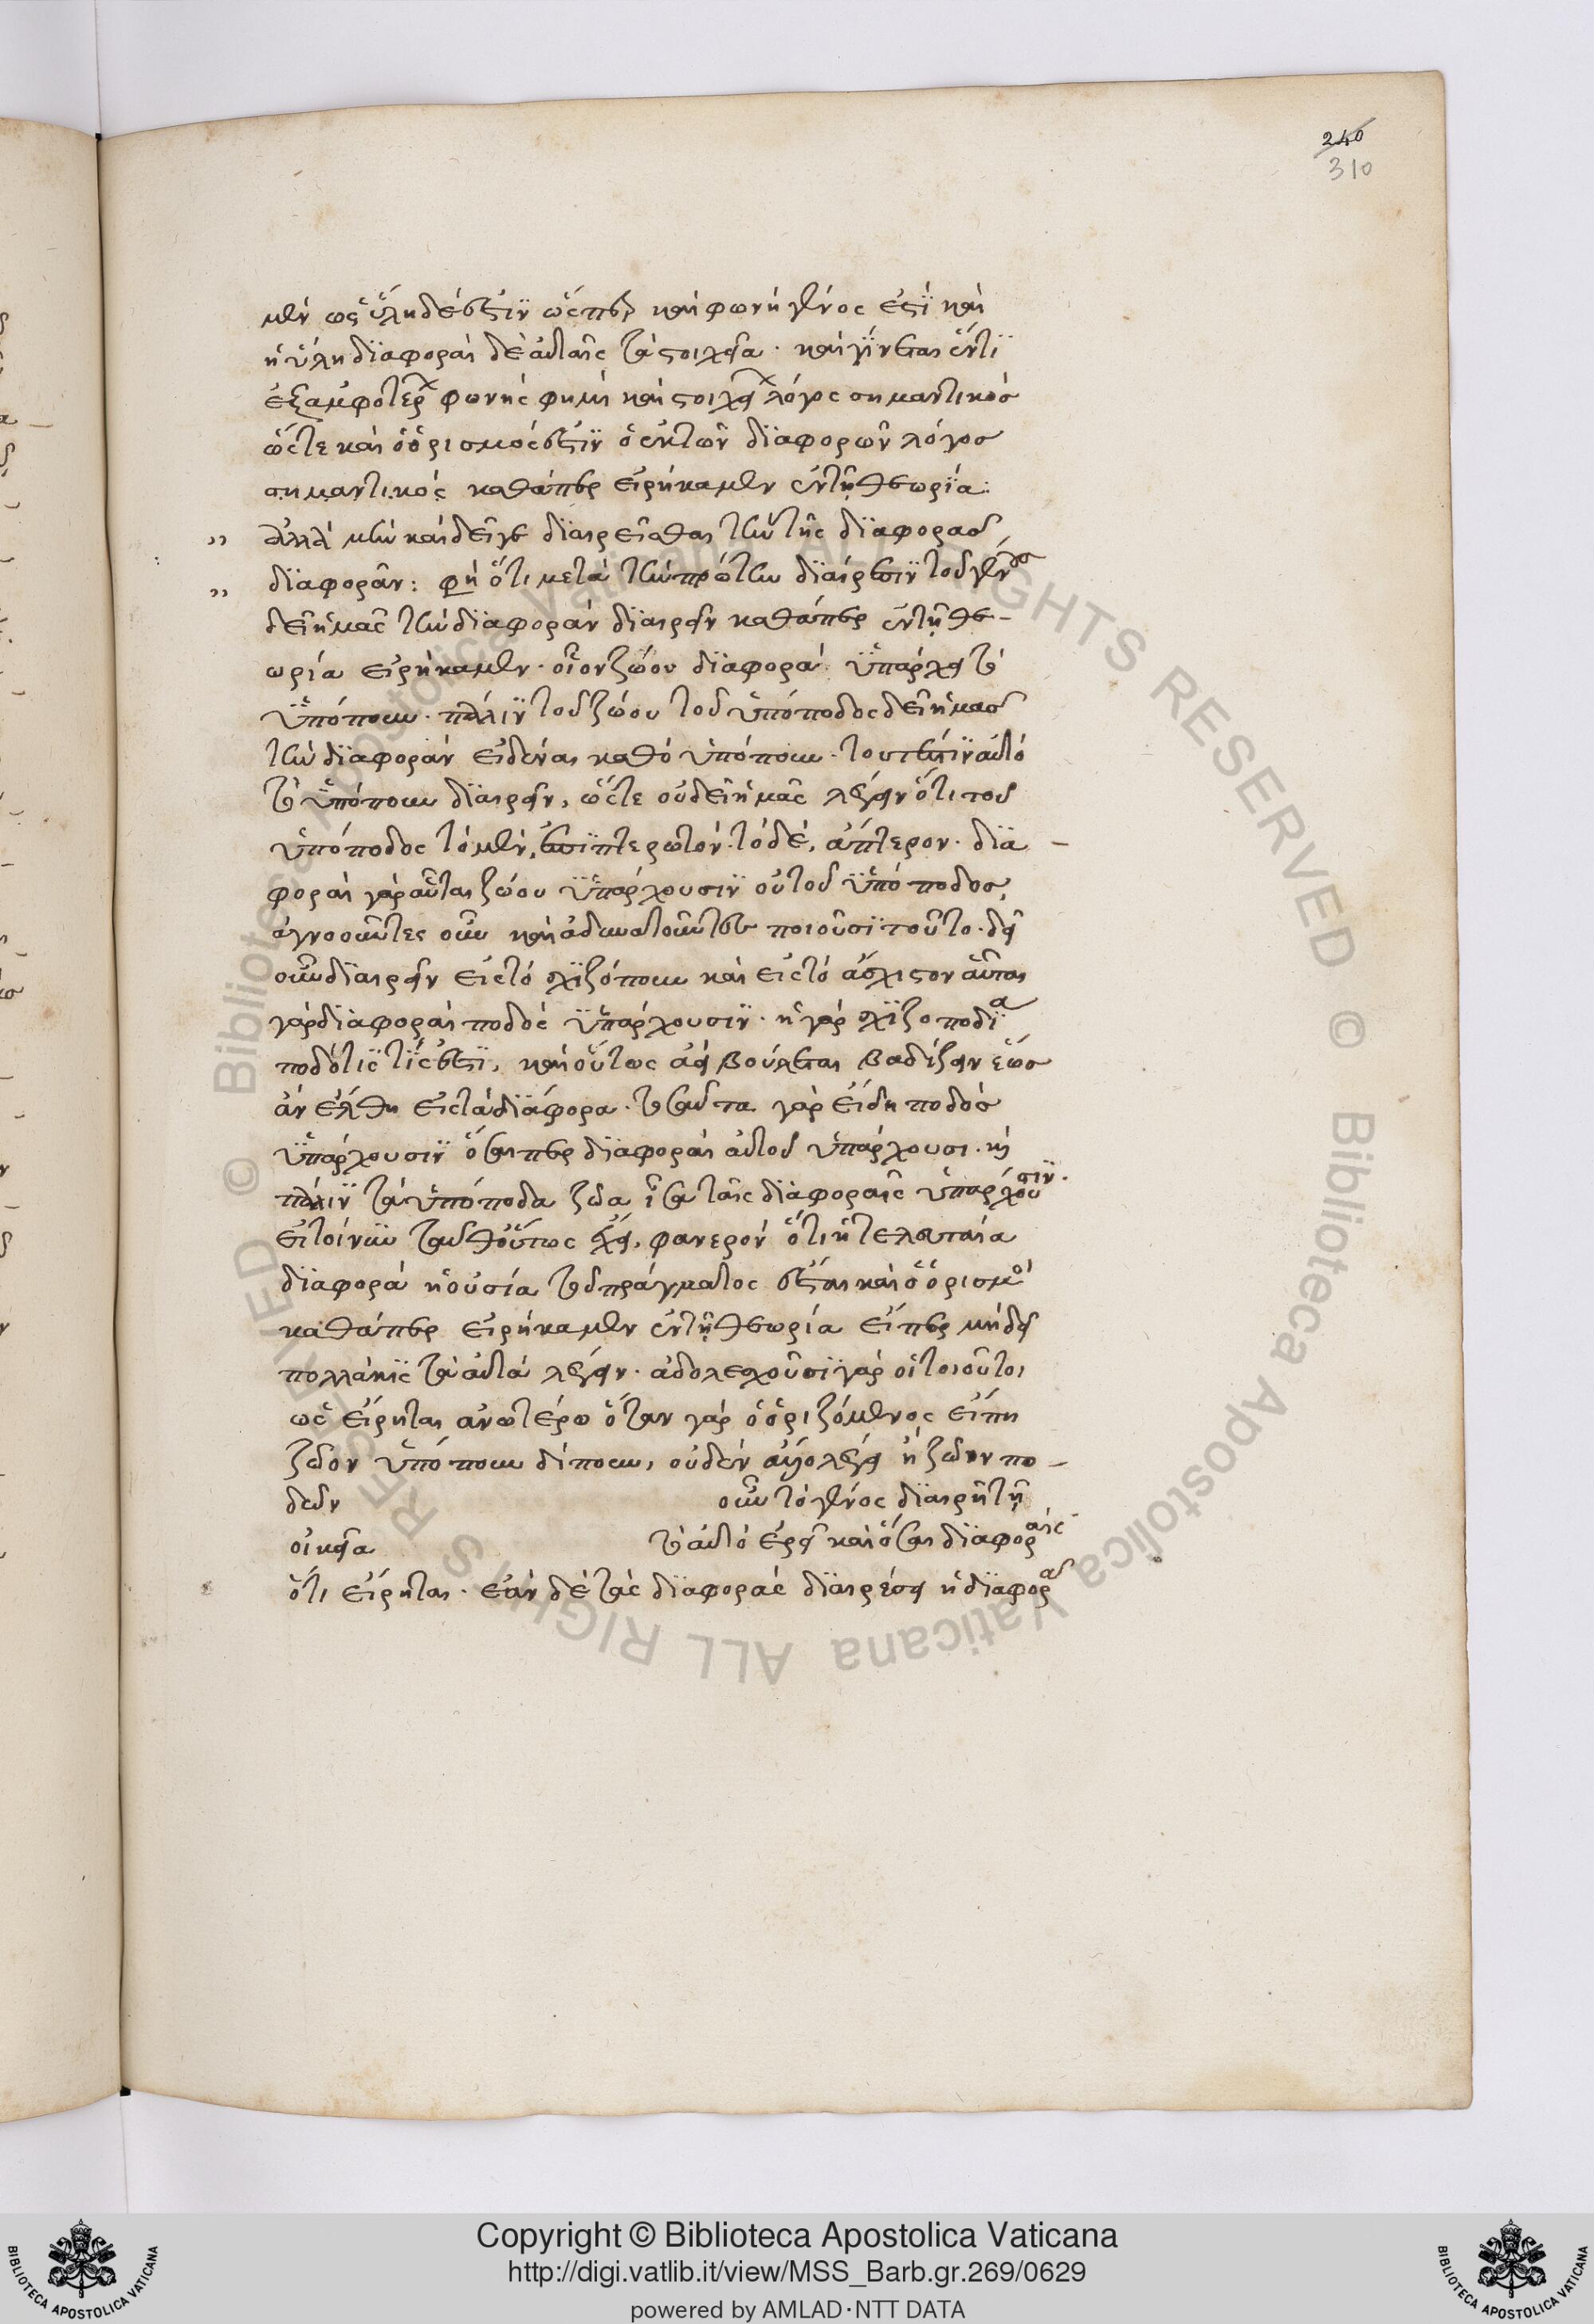 240
310
μὲν ὡς ὕλη δέ ἐστὶν ὥσπερ καὶ φωνὴ γένος ἐστὶ καὶ
ἡ ὕλη διαφοραὶ δὲ αὐταῖς τὰ στοιχεῖα · καὶ γίνεται ἔντι
ἐξ ἀμφοτέρων φωνῆς φημὶ καὶ στοιχείων λόγος σημαντικός
ὥστε καὶ ὁ ὁρισμός ἐστὶν ὁ ἐκ τῶν διαφορῶν λόγος
σημαντικός καθάπερ εἰρήκαμεν ἐν τῇ θεωρία :
„ ἀλλὰ μὴν καὶ δεῖ γε διαιρεῖσθαι τὴν τῆς διαφορᾶς
„ διαφοράν : φη ὅτι μετὰ τὴν πρώτην διαίρεσιν τοῦ γένους
δεῖ ἡμᾶς τὴν διαφορὰν διαιρεῖν καθάπερ ἐν τῇ θε-
ωρία εἰρήκαμεν · οἷον ζώου διαφορὰ ὑπάρχει τὸ
ὑπόπουν · πάλιν τοῦ ζώου τοῦ ὑπόποδος δεῖ ἡμᾶς
τὴν διαφορὰν εἰδέναι καθὸ ὑπόπουν · τουτέστιν αὐτὸ
τὸ ὑπόπουν διαιρεῖν, ὥστε οὐ δεῖ ἡμᾶς λέγειν ὅτι τοῦ
ὑπόποδος τὸ μὲν, ἐστὶ πτερωτόν · τὸ δέ, ἄπτερον · δια-
φοραὶ γὰρ αὗται ζώου ὑπάρχουσιν οὐ τοῦ ὑπόποδος,
ἀγνοοῦντες οὖν καὶ ἀδυνατοῦντες ποιοῦσι τοῦτο · δεῖ
οὖν διαιρεῖν εἰς τὸ σχιζόπουν καὶ εἰς τὸ ἄσχιστον αὗται
γὰρ διαφοραὶ ποδός ὑπάρχουσιν · ἡ γὰρ σχιζοποδία
ποδότις τίς ἐστι, καὶ οὕτως ἀεὶ βούλεται βαδίζειν ἕως
ἂν ἔλθη εἰς τὰ διάφορα · τοσαῦτα γὰρ εἴδη ποδὸς
ὑπάρχουσιν ὅσαι περ διαφοραὶ αὐτοῦ ὑπάρχουσι · καὶ
πάλιν τὰ ὑπόποδα ζῶα ἴσα ταῖς διαφοραῖς ὑπάρχουσιν ·
εἰ τοίνυν ταῦθ' οὕτως ἔχει, φανερὸν ὅτι ἡ τελευταία
διαφορὰ ἡ οὐσία τοῦ πράγματος ἔσται καὶ ὁ ὁρισμός
καθάπερ εἰρήκαμεν ἐν τῇ θεωρία εἴπερ μὴ δεῖ
πολλάκις τὰ αὐτὰ λέγειν · ἀδολεσχοῦσι γὰρ οἱ τοιοῦτοι
ὡς εἴρηται ἀνωτέρω ὅταν γὰρ ὁ ὁριζόμενος εἴπη
ζῶον ὑπόπουν δίπουν, οὐδὲν ἄλλο λέγει ἢ ζῶον πο-
δῶν οὖν τὸ γένος διαιρῆ τῇ
οἰκεία τὸ αὐτὸ ἐρεῖ καὶ ὅσαι διαφοραῖς
ὅτι εἴρηται · ἐὰν δὲ τὰς διαφορὰς διαιρέσει ἡ διαφορᾶς
Copyright © Biblioteca Apostolica Vaticana
http://digi.vatlib.it/view/MSS_Barb.gr.269/0629
powered by AMLAD·NTT DATA